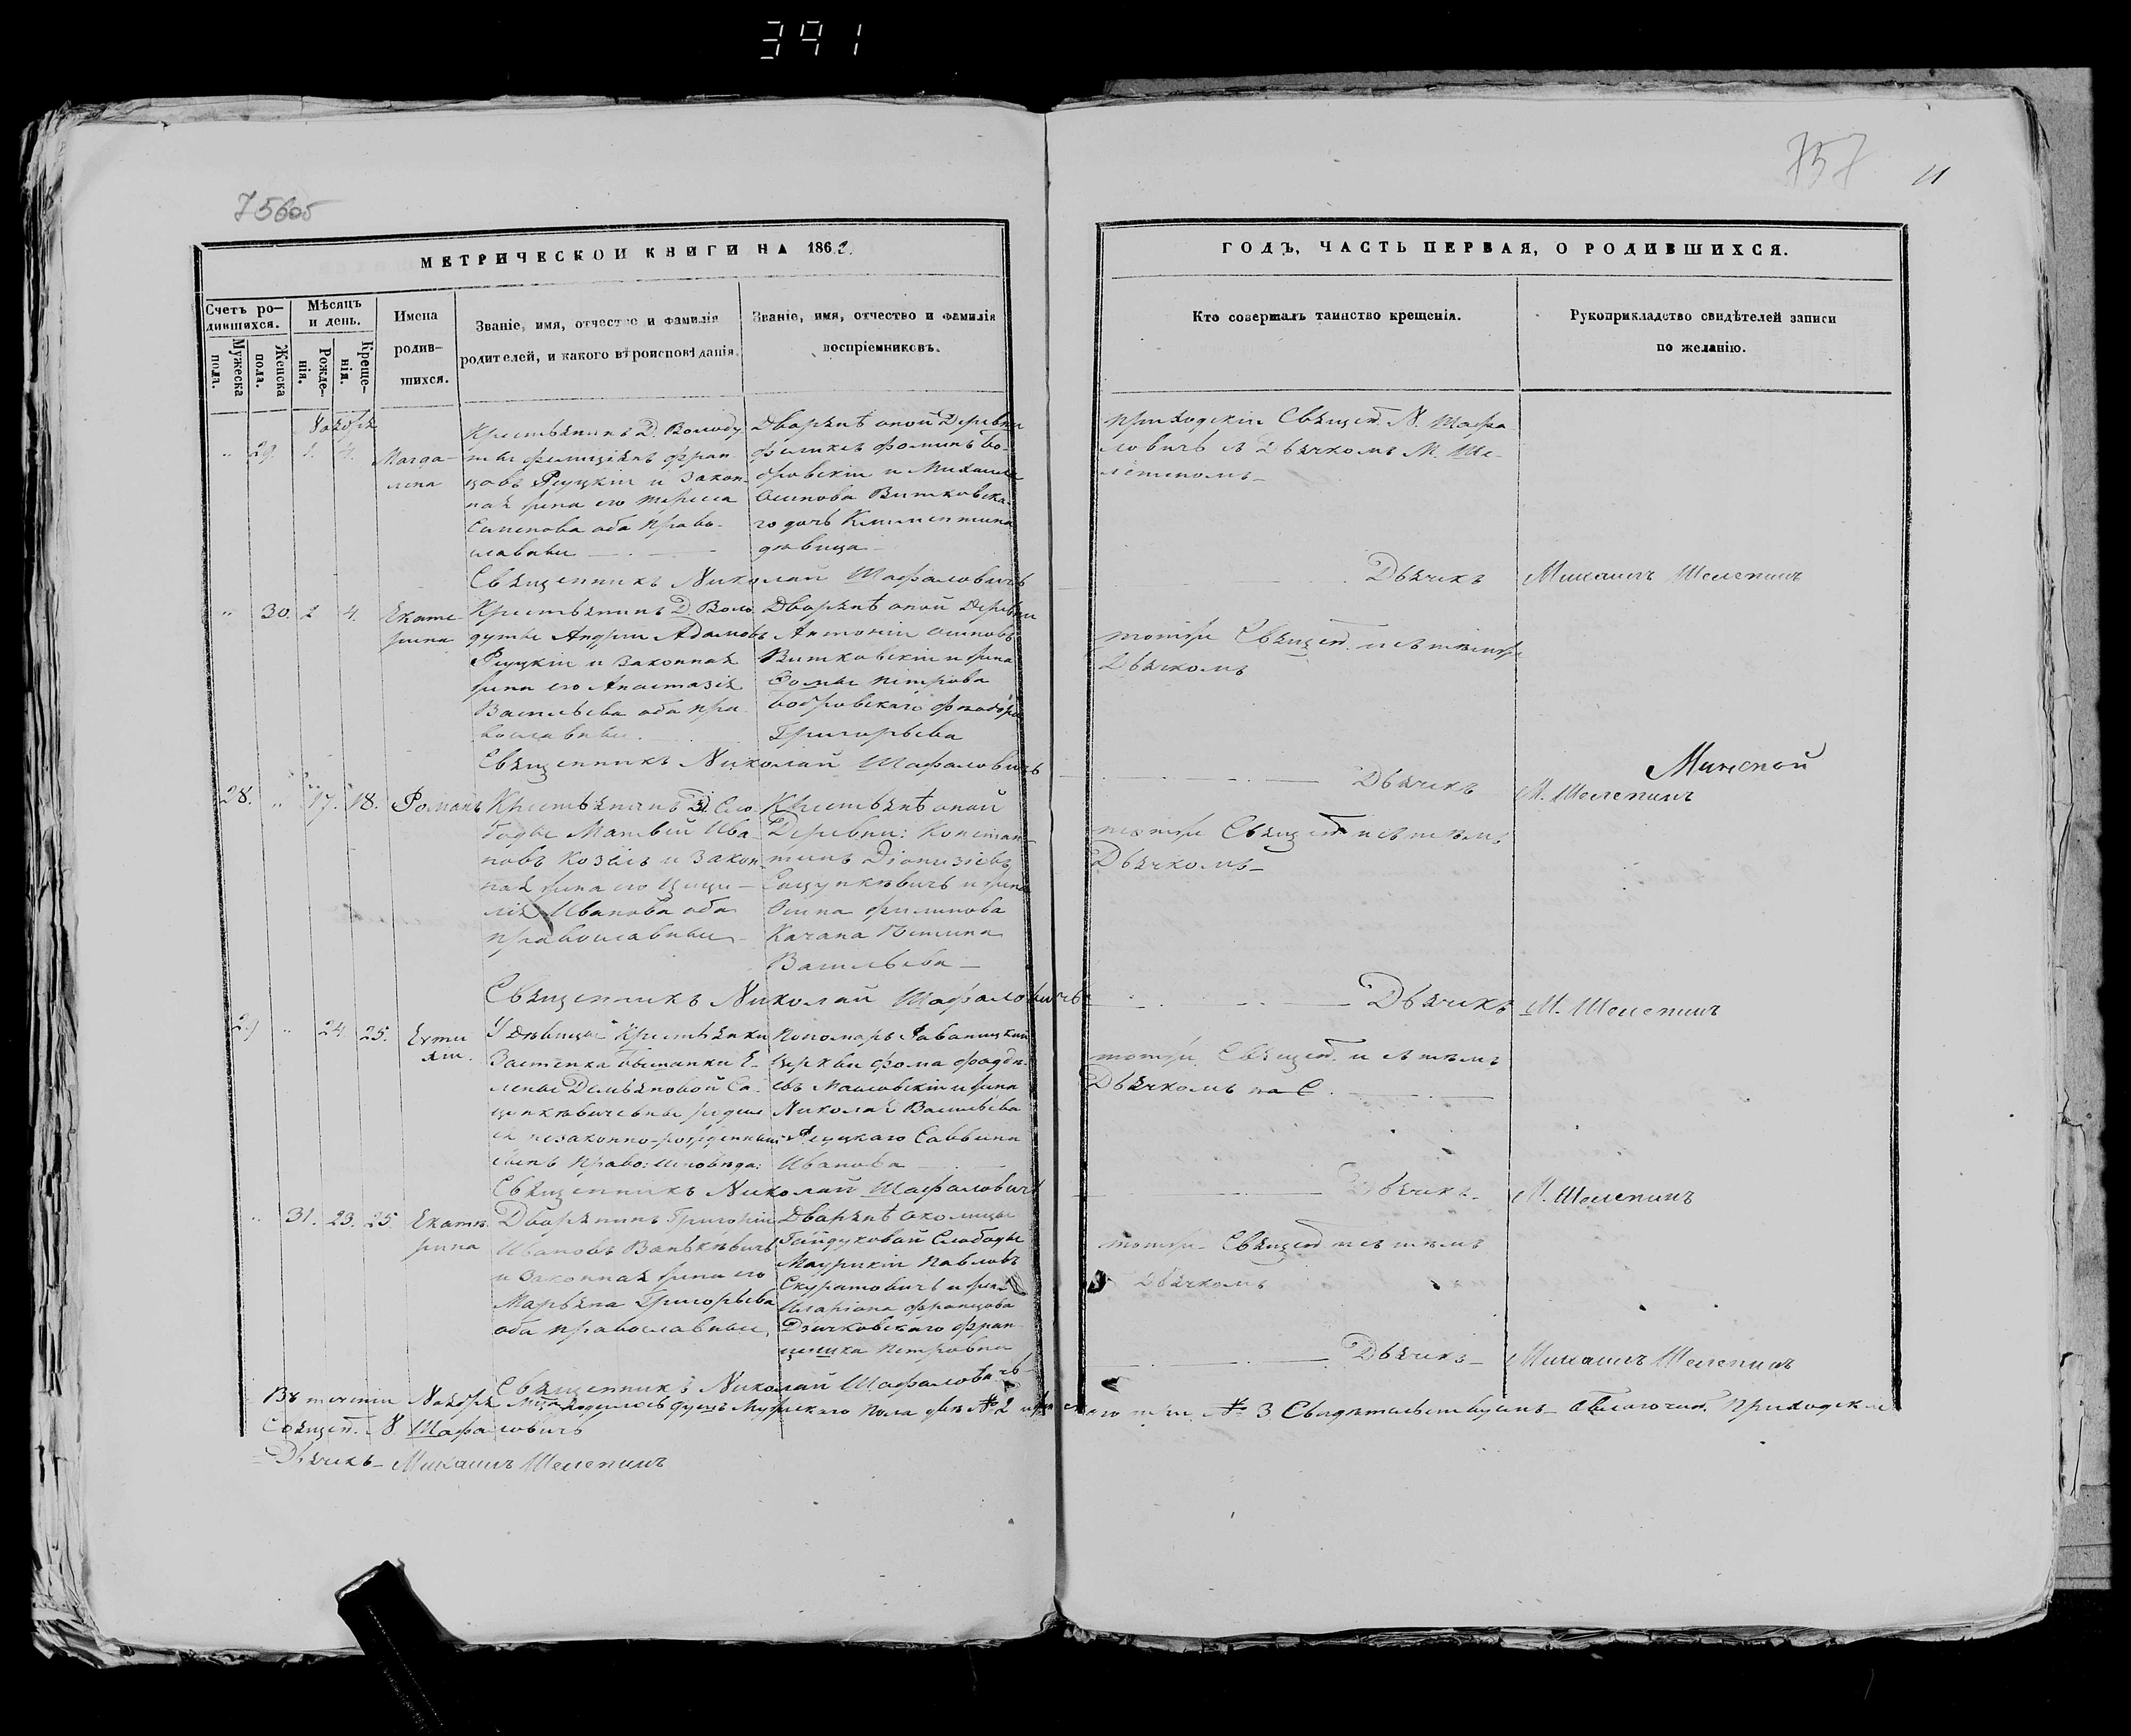 391
756об
757
11
МЕТРИЧЕСКОИ КНИГИ НА 1862.
ГОДЪ, ЧАСТЬ ПЕРВАЯ, О РОДИВШИХСЯ.
Счетъ ро-
дившихся.
Мужеска
пола.
Женска
пола.
Мѣсяцъ
и день.
Рожде-
нія.
Креще-
нія.
Имена
родив-
шихся.
Званіе, имя, отчество и фамилія
родителей, и какого вѣроисповѣданія.
Званіе, имя, отчество и фамилія
воспріемниковъ.
Кто совершалъ таинство крещенія.
Рукоприкладство свидѣтелей записи
по желанію.
Ноября
" 29. 1. 4.
Магда-
лена
Крестьянинъ Д. Володу
Фран-
цовъ Рецкій и закон-
ная жена его Тереса
Семенова оба право-
славные
Дворянѣ оной Деревни
Феликсъ Фоминъ Бо-
бровскій и Михаила
Осипова Витковска-
го дочь Климентина
дѣвица
Приходскій Священ. Н. Шафа-
ловичъ съ Дьячкомъ М. Ше-
лепиномъ
Священникъ Николай Шафаловичъ
Дьячекъ Михаилъ Шелепинъ
" 30. 2 4.
Екате-
рина
Крестьянинъ Д. Воло
дуты Андрей Адамовъ
Рецкій и законная
жена его Анастазія
Васильева оба пра-
вославные
Дворянѣ оной Деревни
Антоній Осиповъ
Витковскій и жена
Фомы Петрова
Бобровскаго
Григорьева
тотже Священ. и съ тѣмже
Дьячкомъ
Священникъ Николай Шафаловичъ
Дьячекъ М. Шелепинъ
Минской
28. " 17. 18.
Романъ
Крестьянинъ Д. Сло
боды Матвѣй Ива-
новъ Козелъ и закон-
ная жена его Цеци-
лія Иванова оба
православные
Крестьянѣ оной
Деревни: Констан-
тинъ Діонизіевъ
Сацункѣвичъ и жена
Осипа Филипова
Качана Юстина
Васильева
тотже Священ. и съ тѣмъ
Дьячкомъ
Священникъ Николай Шафаловичъ
Дьячекъ М. Шелепинъ
29 " 24 25.
У дѣвицы Крестьянки
Застѣнка Е-
лены Демьяновой Са-
цункѣвичевны родил-
ся незаконно-рожденный
сынъ право: исповѣда:
Пономарь
церкви Фома Фадде-
евъ Масловскій и жена
Николая Васильева
Рецкаго Саввина
Иванова
тотже Священ. и съ тѣмъ
Дьячкомъ
Священникъ Николай Шафаловичъ
Дьячекъ М. Шелепинъ
" 31. 23. 25.
Екате-
рина
Дворянинъ Григорій
Ивановъ Ванькѣвичъ
и законная жена его
Марьяна Григорьева
оба православные,
Дворянѣ околицы
Гайдуковой Слободы
Маурикій Павловъ
Скуратовичъ и жена
Иларіона Францова
Дзичковскаго Фран-
цишка Петровна
тотже Священ. и съ тѣмъ
Дьячкомъ
Священникъ Николай Шафаловичъ
Дьячекъ Михаилъ Шелепинъ
Въ теченіи Ноября М-ца родилось душъ Мужескаго Пола двѣ № 2 и женскаго три № 3 Свидѣтельствуемъ Приходскій
Священ. Н. Шафаловичъ
Дьячекъ Михаилъ Шелепинъ